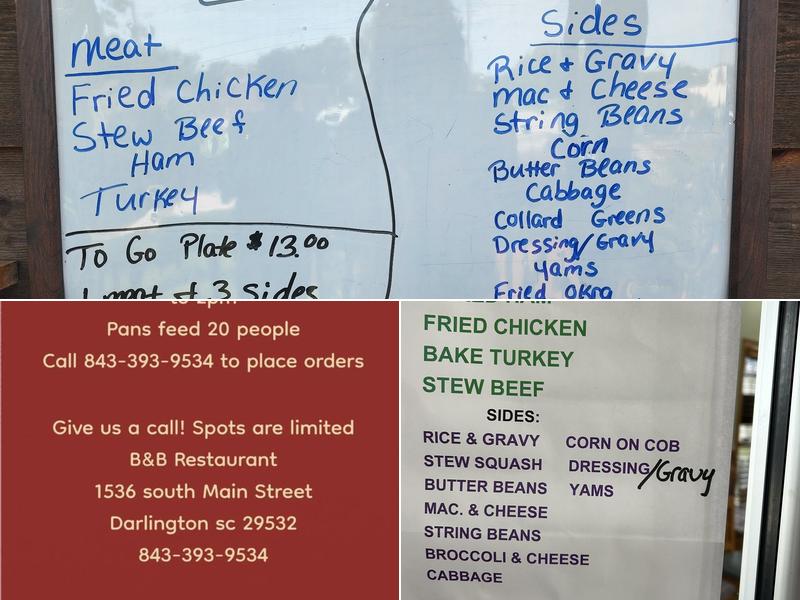 Meat
Fried Chicken
Stew Beef
Ham
Turkey
To Go Plate $13.00
3 Sides
Sides
Rice & Gravy
Mac & Cheese
String Beans
Corn
Butter Beans
Cabbage
Collard Greens
Dressing/Gravy
Yams
Fried Okra
to 2pm
Pans feed 20 people
Call 843-393-9534 to place orders
Give us a call! Spots are limited
B&B Restaurant
1536 south Main Street
Darlington sc 29532
843-393-9534
HAM
FRIED CHICKEN
BAKE TURKEY
STEW BEEF
SIDES:
RICE & GRAVY
STEW SQUASH
BUTTER BEANS
MAC. & CHEESE
STRING BEANS
BROCCOLI & CHEESE
CABBAGE
CORN ON COB
DRESSING/Gravy
YAMS